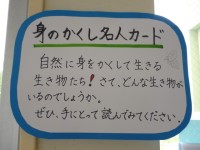 身のかくし名人カード
自然に身をかくして生きる
生き物たち!さて、どんな生き物が
いるのでしょうか。
ぜひ、手にとって読んでみてください。